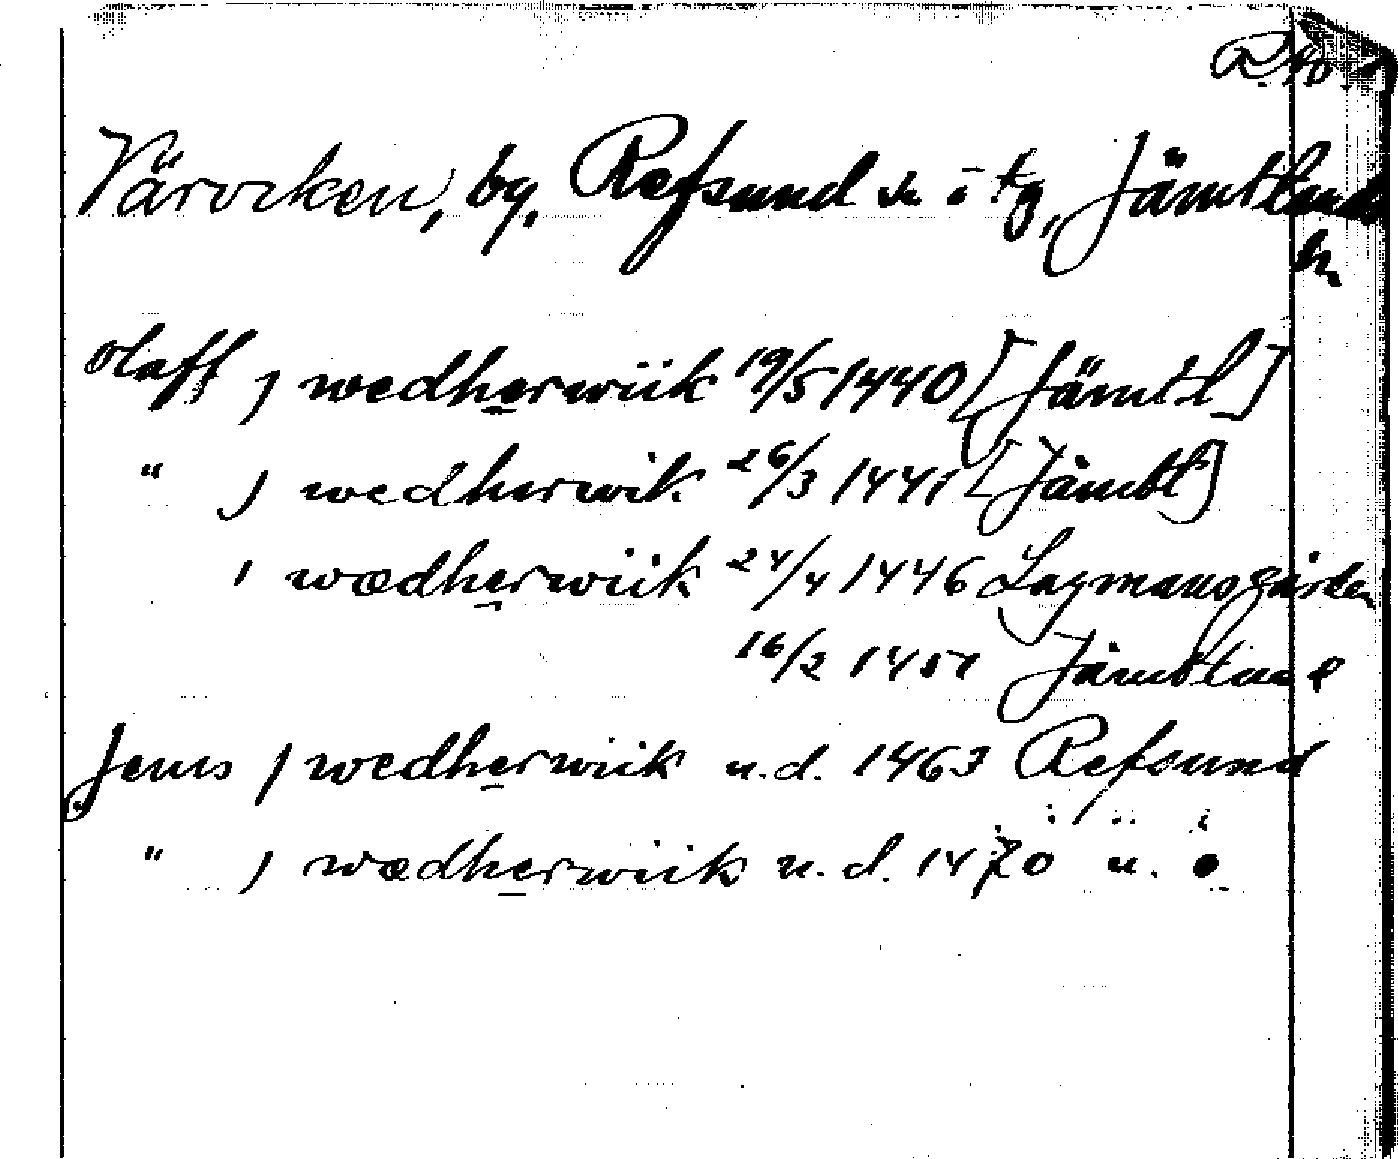 Värviken, by, Refsund sn o tg, Jämtlands
ln
Olaff j wedherwiik 19/5 1440 [Jämtl]
" j wedherwik 26/3 1441 [Jämtl]
i wædherwiik 24/4 1446 Lagmansgården
16/2 1451 Jämtland
Jenis j wedherwiik u.d. 1463 Refsund
" j wædherwiik u.d. 1470 u. ö